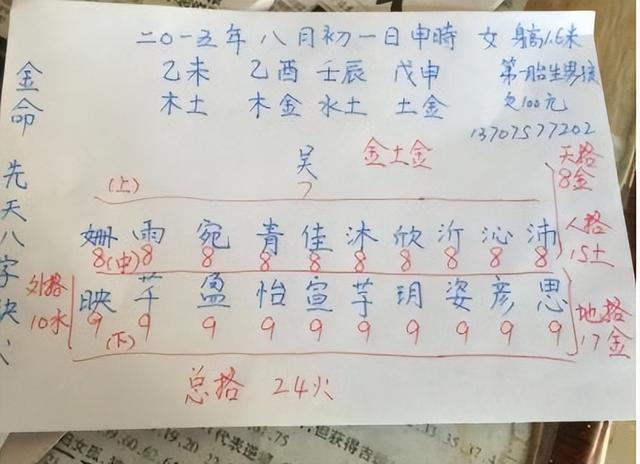 二〇一五年 八月初一日申時 女 身高1.6米
乙未 乙酉 壬辰 戊申 第一胎生男孩
木土 木金 水土 土金 欠100元
13707577202
金命 先天八字缺
吴 金土金 天格
(上) 7 8金
姗 雨 宛 青 佳 沐 欣 沂 沁 沛 人格
8 (中) 8 8 8 8 8 8 8 8 8 15土
外格 映 芊 盈 怡 宣 芋 玥 姿 彦 思 地格
10水 9 9 9 9 9 9 9 9 9 9 17金
(下)
总格 24火
代表逆
但获得吉